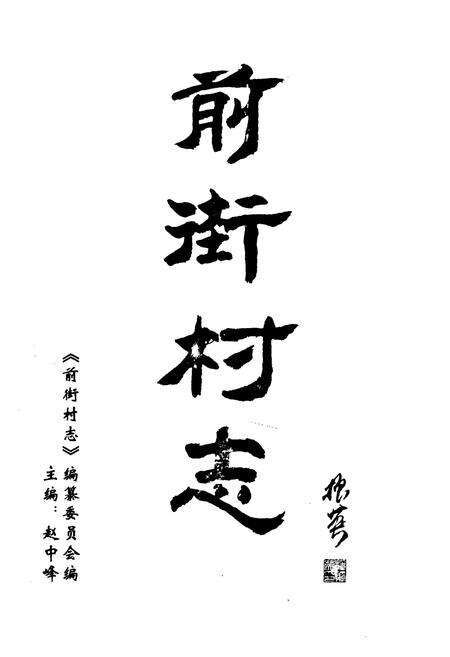 前街村志
《前街村志》编纂委员会编
主编：赵中峰